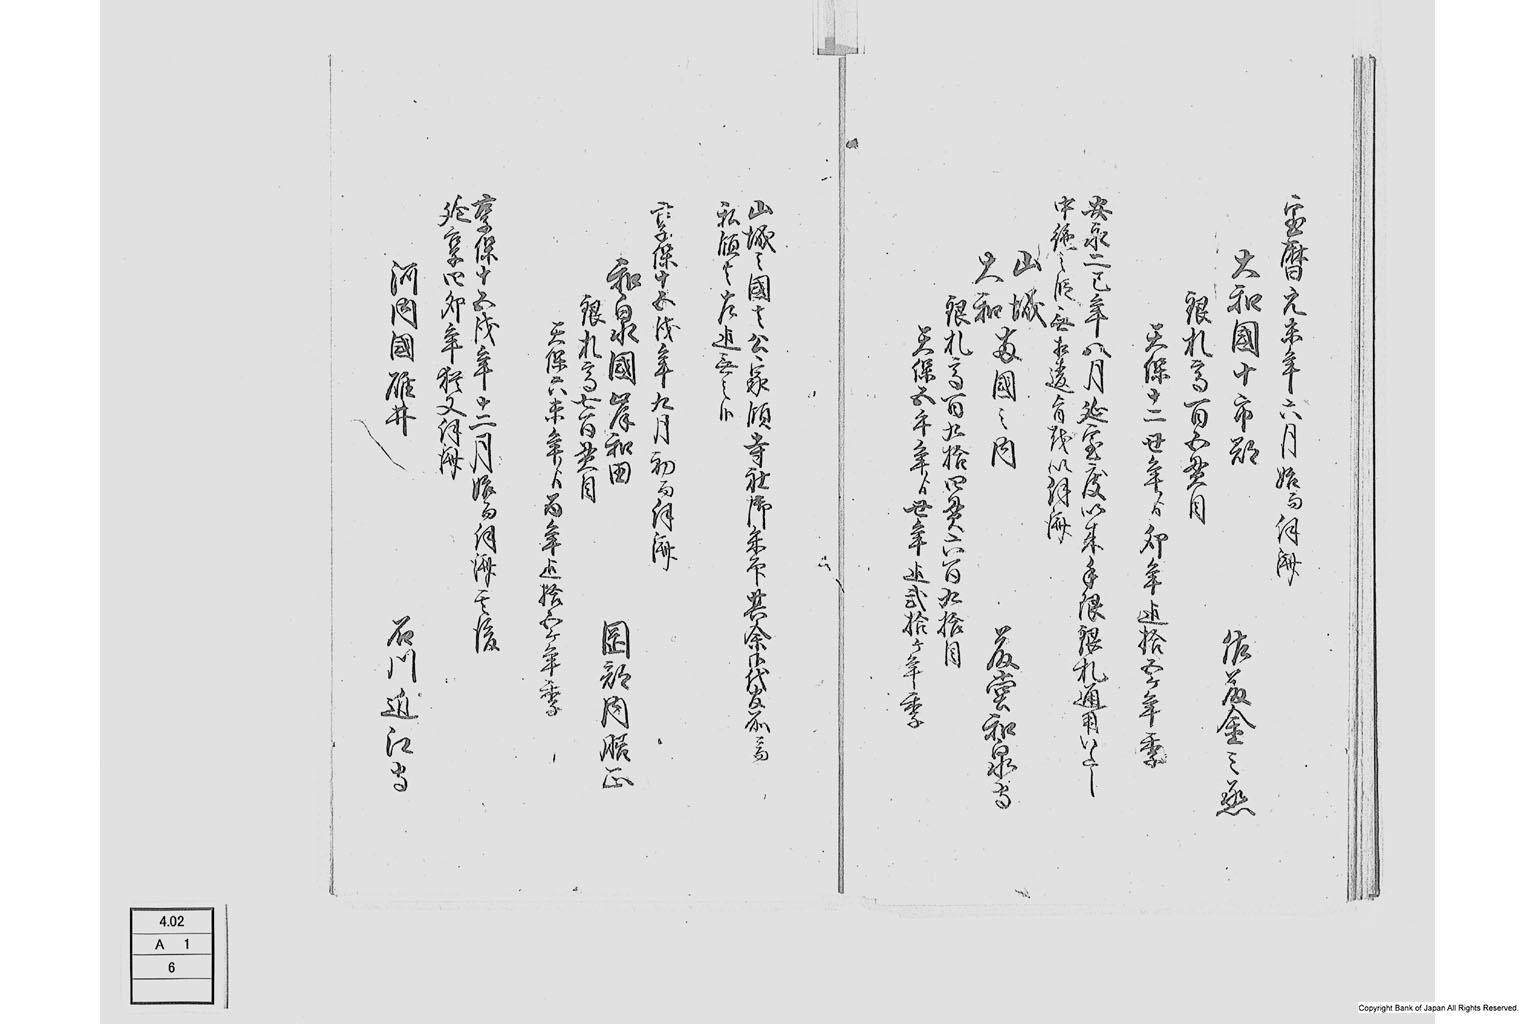 宝暦元未年六月始而伺済
大和國十市郡
佐藤金之烝
銀札高百五貫目
天保十二丑年ゟ卯年迄拾五ケ年季
安永二巳年八月延宝度以来手限銀札通用いたし
中絶之段無相違旨茂以伺済
山城
大和
両國之内
藤堂和泉守
銀札高百九拾四貫六百九拾目
天保五午年ゟ丑年迄弐拾ケ年季
山城之國者公家領寺社御朱印其余御代官所
私領者前迄無之候
享保十五戌年九月初而伺済
和泉國岸和田
岡部内膳正
銀札高七百貫目
天保六未年ゟ酉年迄拾五ケ年季
享保十五戌年十二月始而伺済其後
延享四卯年猶又伺済
河内國雁井
石川近江守
4.02
A 1
6
Copyright Bank of Japan All Rights Reserved.